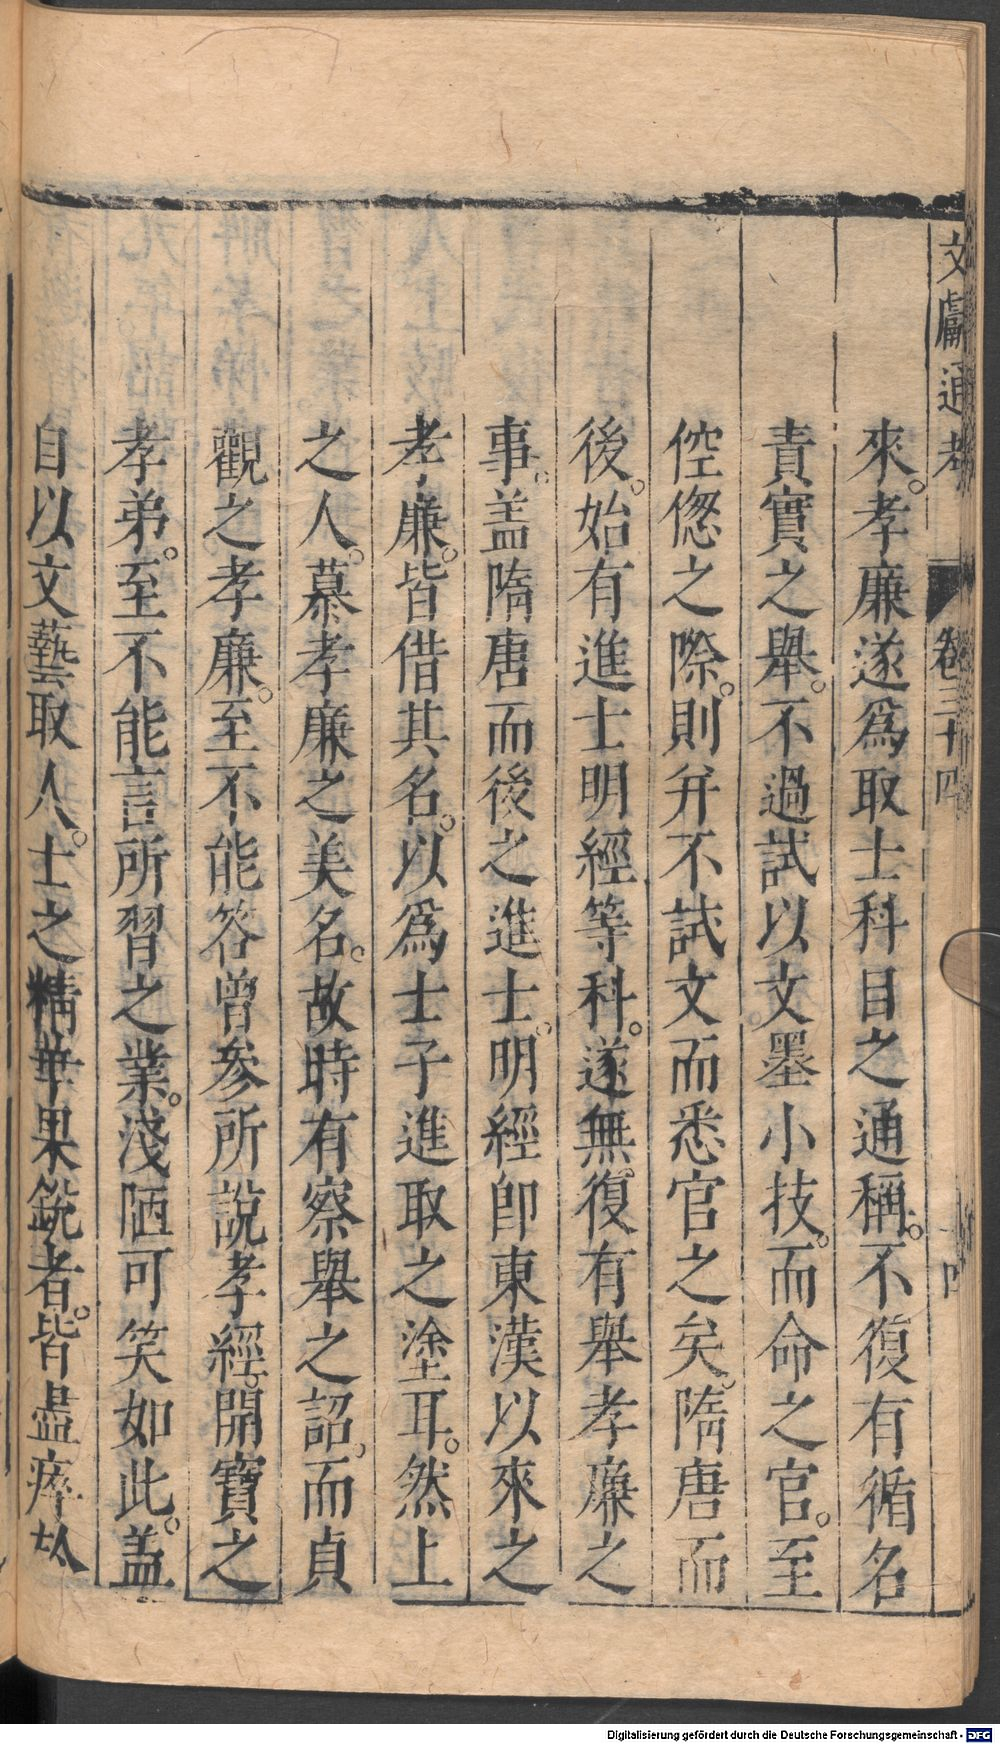 文獻通考 卷三十四 四
來。孝廉遂爲取士科目之通稱。不復有循名
責實之舉。不過試以文墨小技。而命之官。至
倥傯之際。則幷不試文而悉官之矣。隋唐而
後。始有進士明經等科。遂無復有舉孝廉之
事。盖隋唐而後之進士。明經卽東漢以來之
孝廉。皆借其名。以爲士子進取之塗耳。然上
之人。慕孝廉之美名。故時有察舉之詔。而貞
觀之孝廉。至不能答曾參所說孝經。開寶之
孝弟。至不能言所習之業。淺陋可笑如此。盖
自以文藝取人。士之精華果銳者。皆盡瘁於
Digitalisierung gefördert durch die Deutsche Forschungsgemeinschaft - DFG